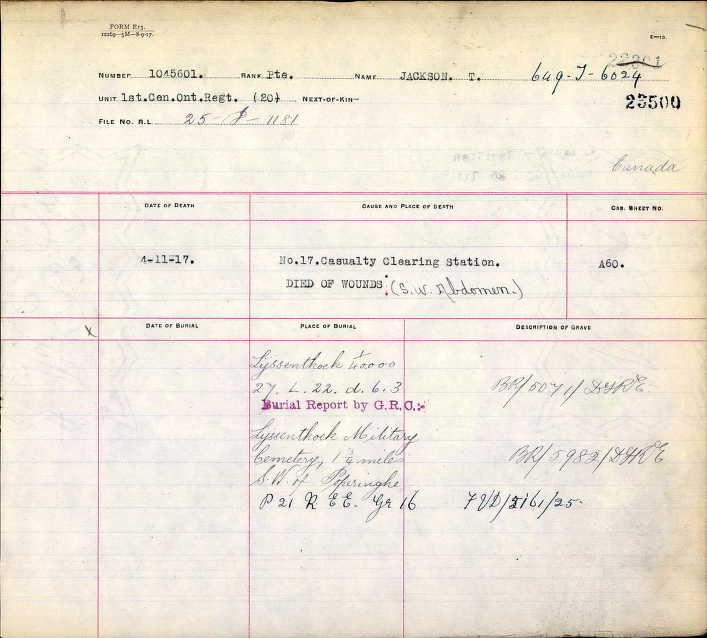 FORM E13.
12269—5M—8-9-17.
E—13.
23801
NUMBER 1045601. RANK Pte. NAME JACKSON. T. 649-J-6024
UNIT 1st.Cen.Ont.Regt. (20) NEXT-OF-KIN—
23500
FILE NO. R.L. 25-J-1181
Canada
DATE OF DEATH CAUSE AND PLACE OF DEATH CAS. SHEET NO.
4-11-17. No.17.Casualty Clearing Station. A60.
DIED OF WOUNDS: (S.W. Abdomen.)
x DATE OF BURIAL PLACE OF BURIAL DESCRIPTION OF GRAVE
Lyssenthoek 1/40000
27. L. 22. d. 6.3 BR/5071/DGRE
Burial Report by G.R.C:-
Lyssenthoek Military
Cemetery, 1 3/4 miles BR/5982/DGRE
S.W. of Popringhe
P 21 R EE. Gr 16 7VD/2161/25-